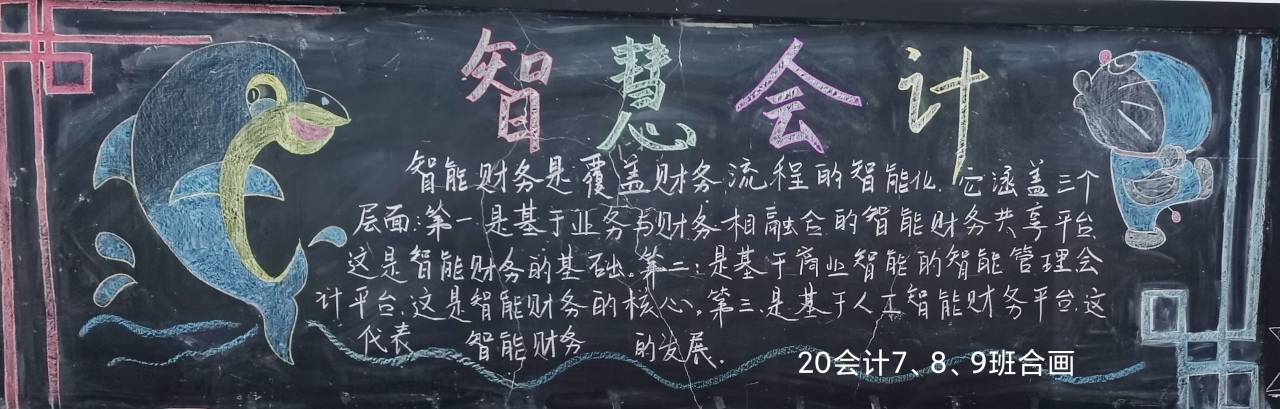 智慧会计
智能财务是覆盖财务流程的智能化.它涵盖三个
层面:第一是基于业务与财务相融合的智能财务共享平台
这是智能财务的基础。第二:是基于商业智能的智能管理会
计平台.这是智能财务的核心。第三.是基于人工智能财务平台.这
代表 智能财务 的发展.
20会计7、8、9班合画